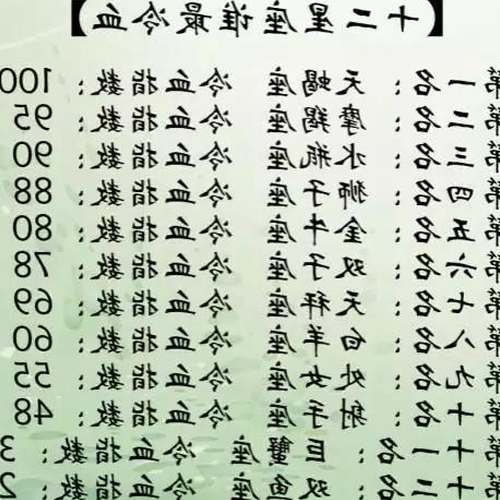 【十二星座谁最冷血】
第一名：天蝎座 冷血指数：100
第二名：摩羯座 冷血指数：95
第三名：水瓶座 冷血指数：90
第四名：狮子座 冷血指数：88
第五名：金牛座 冷血指数：80
第六名：双子座 冷血指数：78
第七名：天秤座 冷血指数：69
第八名：白羊座 冷血指数：60
第九名：处女座 冷血指数：55
第十名：射手座 冷血指数：48
第十一名：巨蟹座 冷血指数：3
第十二名：双鱼座 冷血指数：2